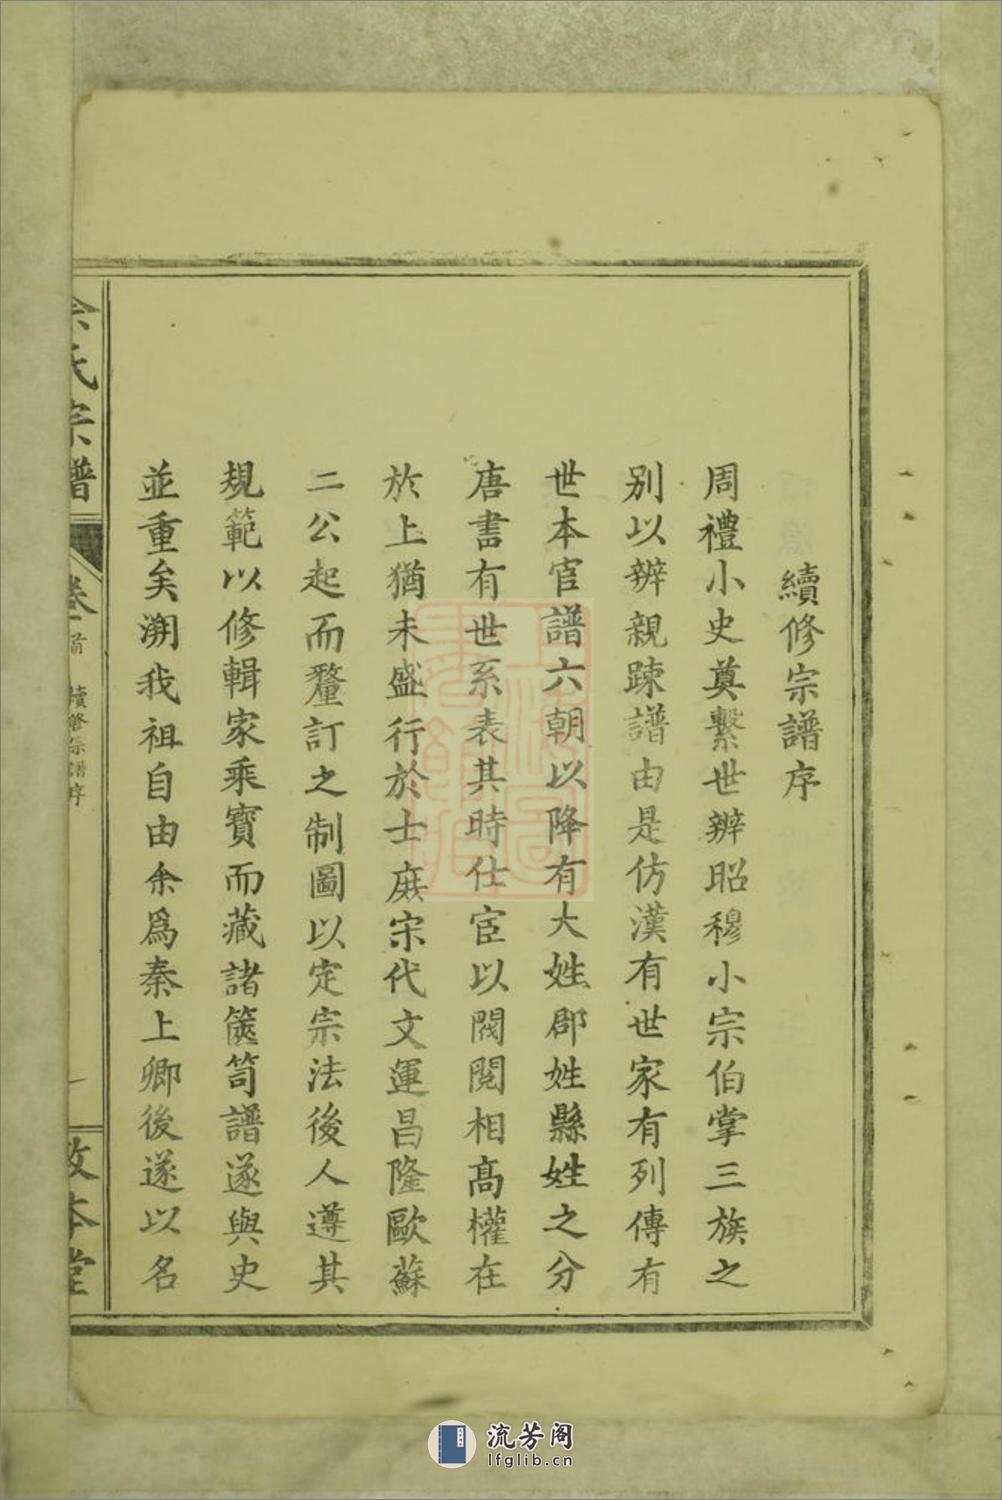 續修宗譜序
周禮小史奠繫世辨昭穆小宗伯掌三族之
別以辨親踈譜由是仿漢有世家有列傳有
世本官譜六朝以降有大姓郡姓縣姓之分
唐書有世系表其時仕宦以閥閱相高權在
於上猶未盛行於士庶宋代文運昌隆歐蘇
二公起而釐訂之制圖以定宗法後人遵其
規範以修輯家乘寶而藏諸篋笥譜遂與史
並重矣溯我祖自由余爲秦上卿後遂以名
余氏宗譜
卷首
續修宗譜序
一
敦本堂
上海圖書館藏
流芳阁
lfglib.cn